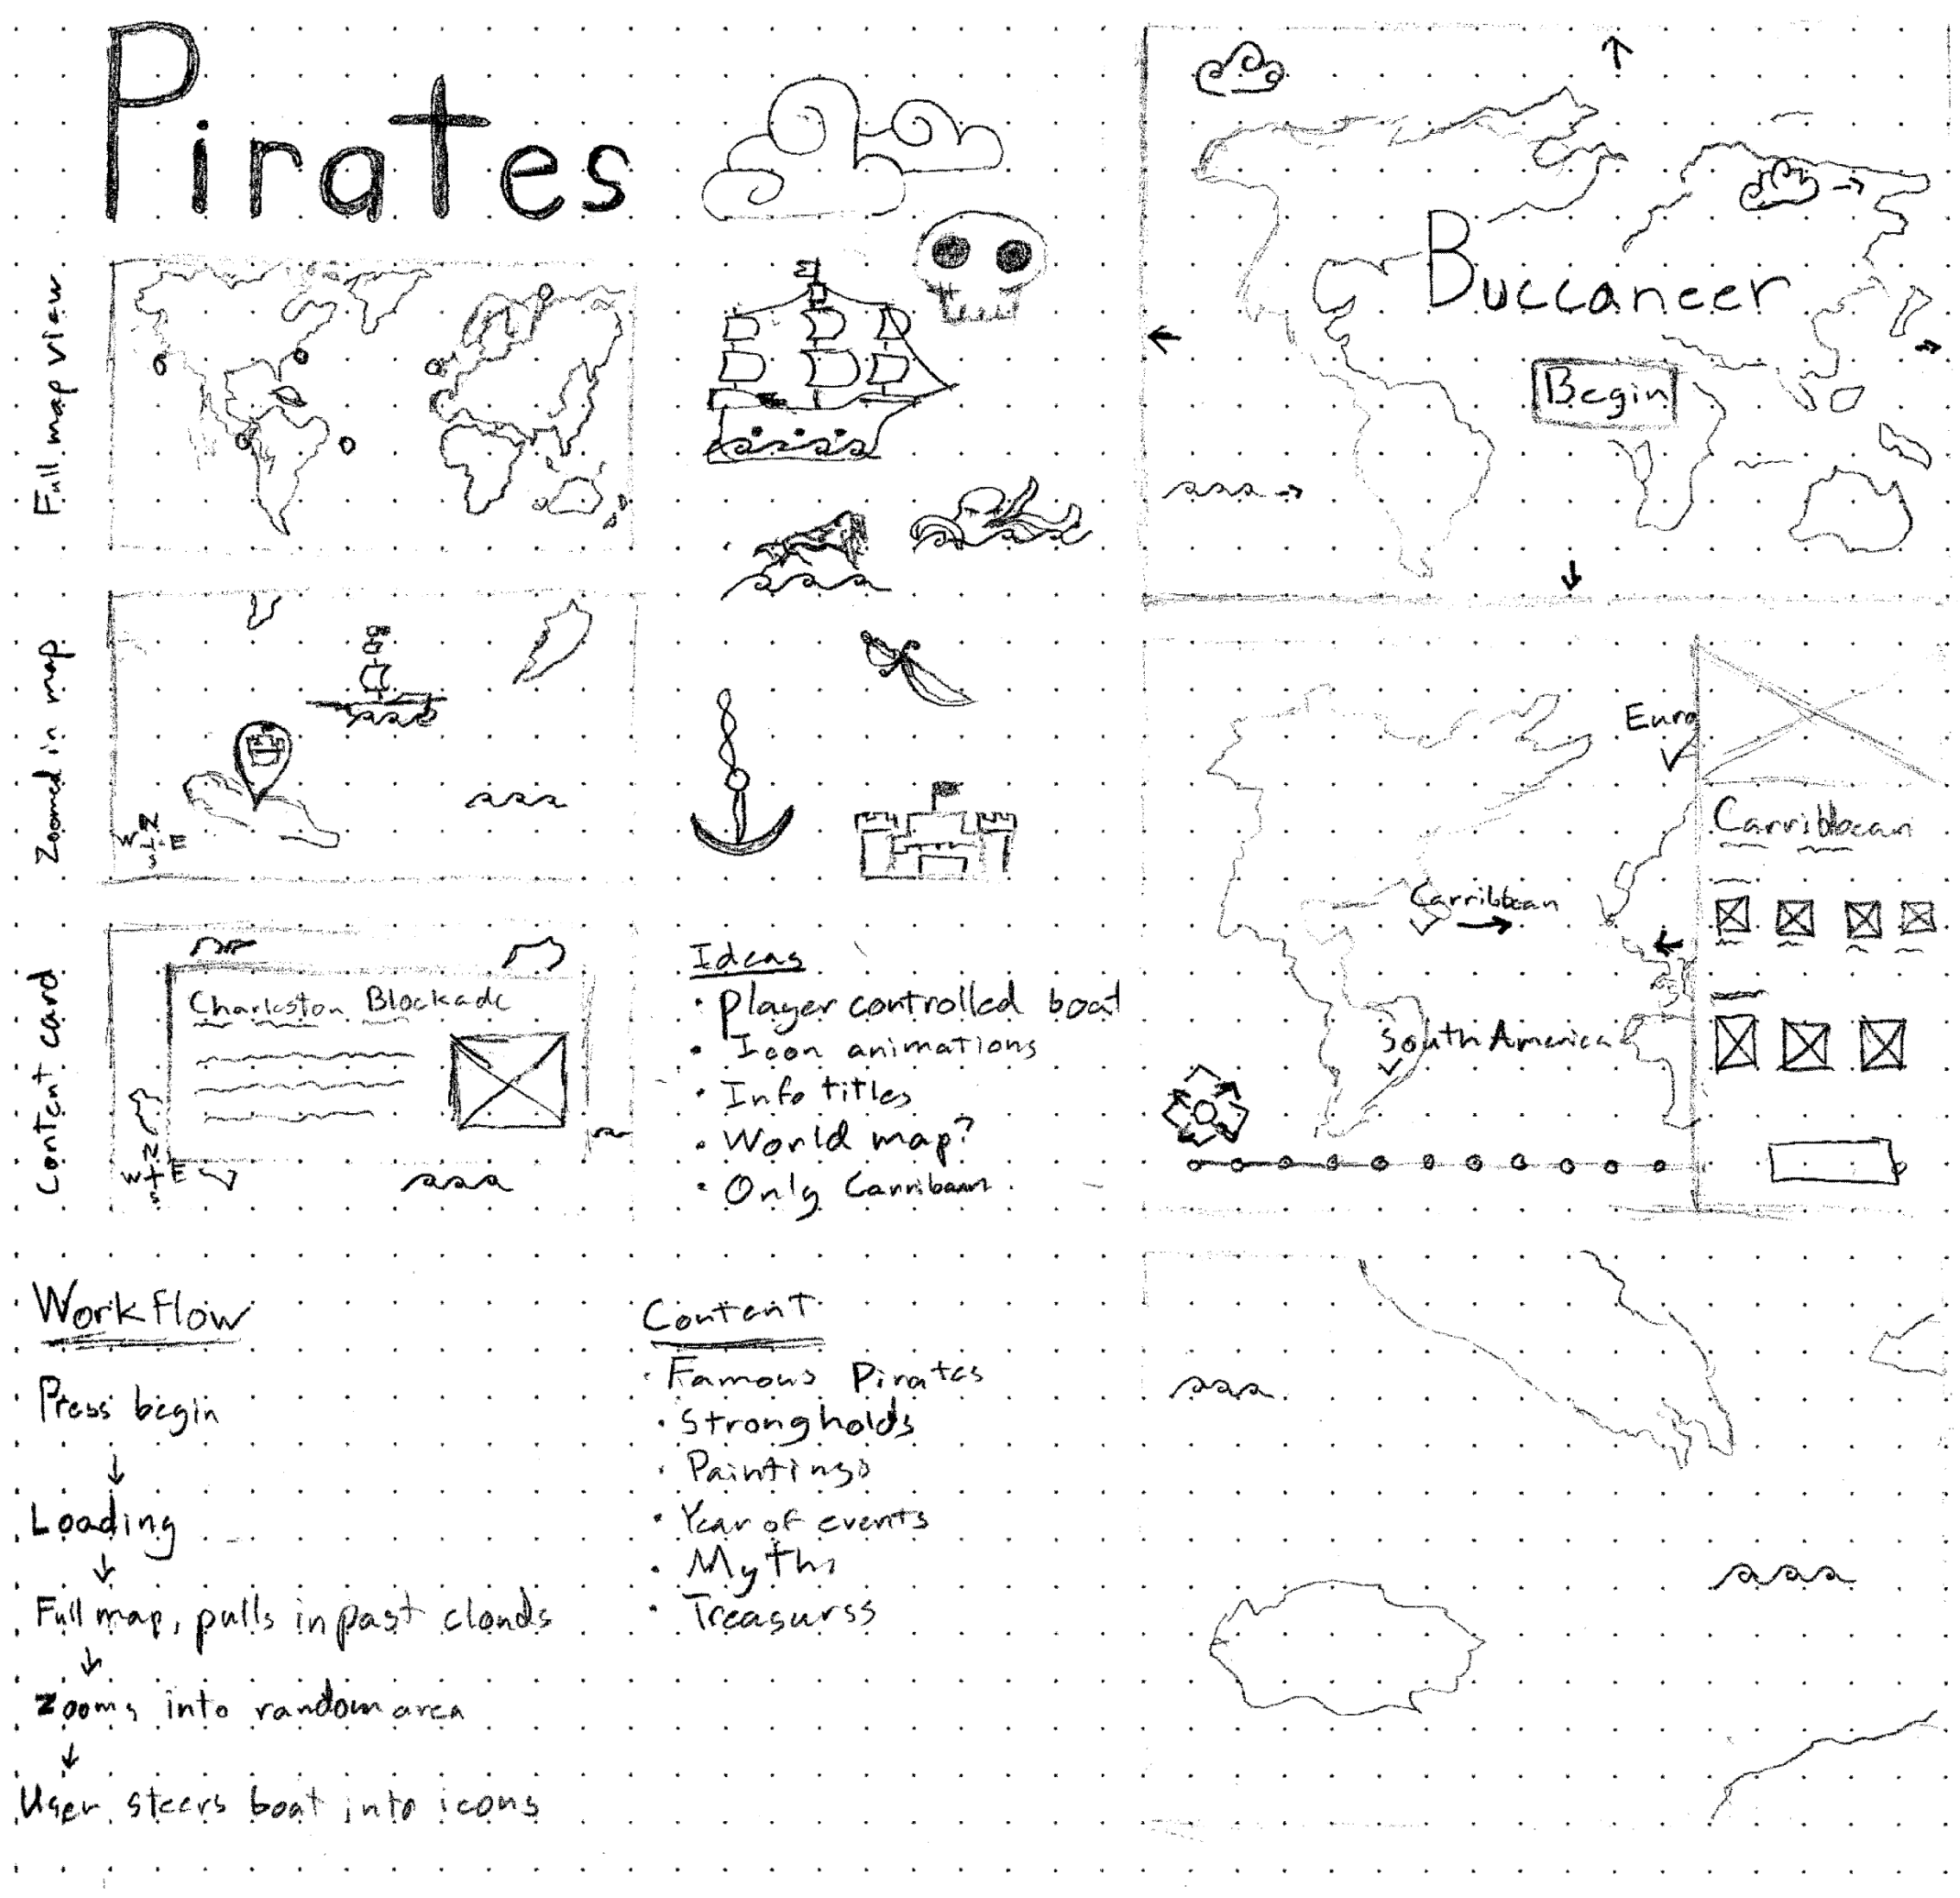 Pirates
Full map view
Zoomed in map
W N E
S
Content card
Charleston Blockade
W N E
S
Ideas
· Player controlled boat
· Icon animations
· Info titles
· World map?
· Only Carribean
Workflow
Press begin
↓
Loading
↓
Full map, pulls in past clouds
↓
Zooms into random area
↓
User steers boat into icons
Content
· Famous Pirates
· Strongholds
· Paintings
· Year of events
· Myths
· Treasurss
Buccaneer
Begin
Euro
Carribbean
Carribbean
South America